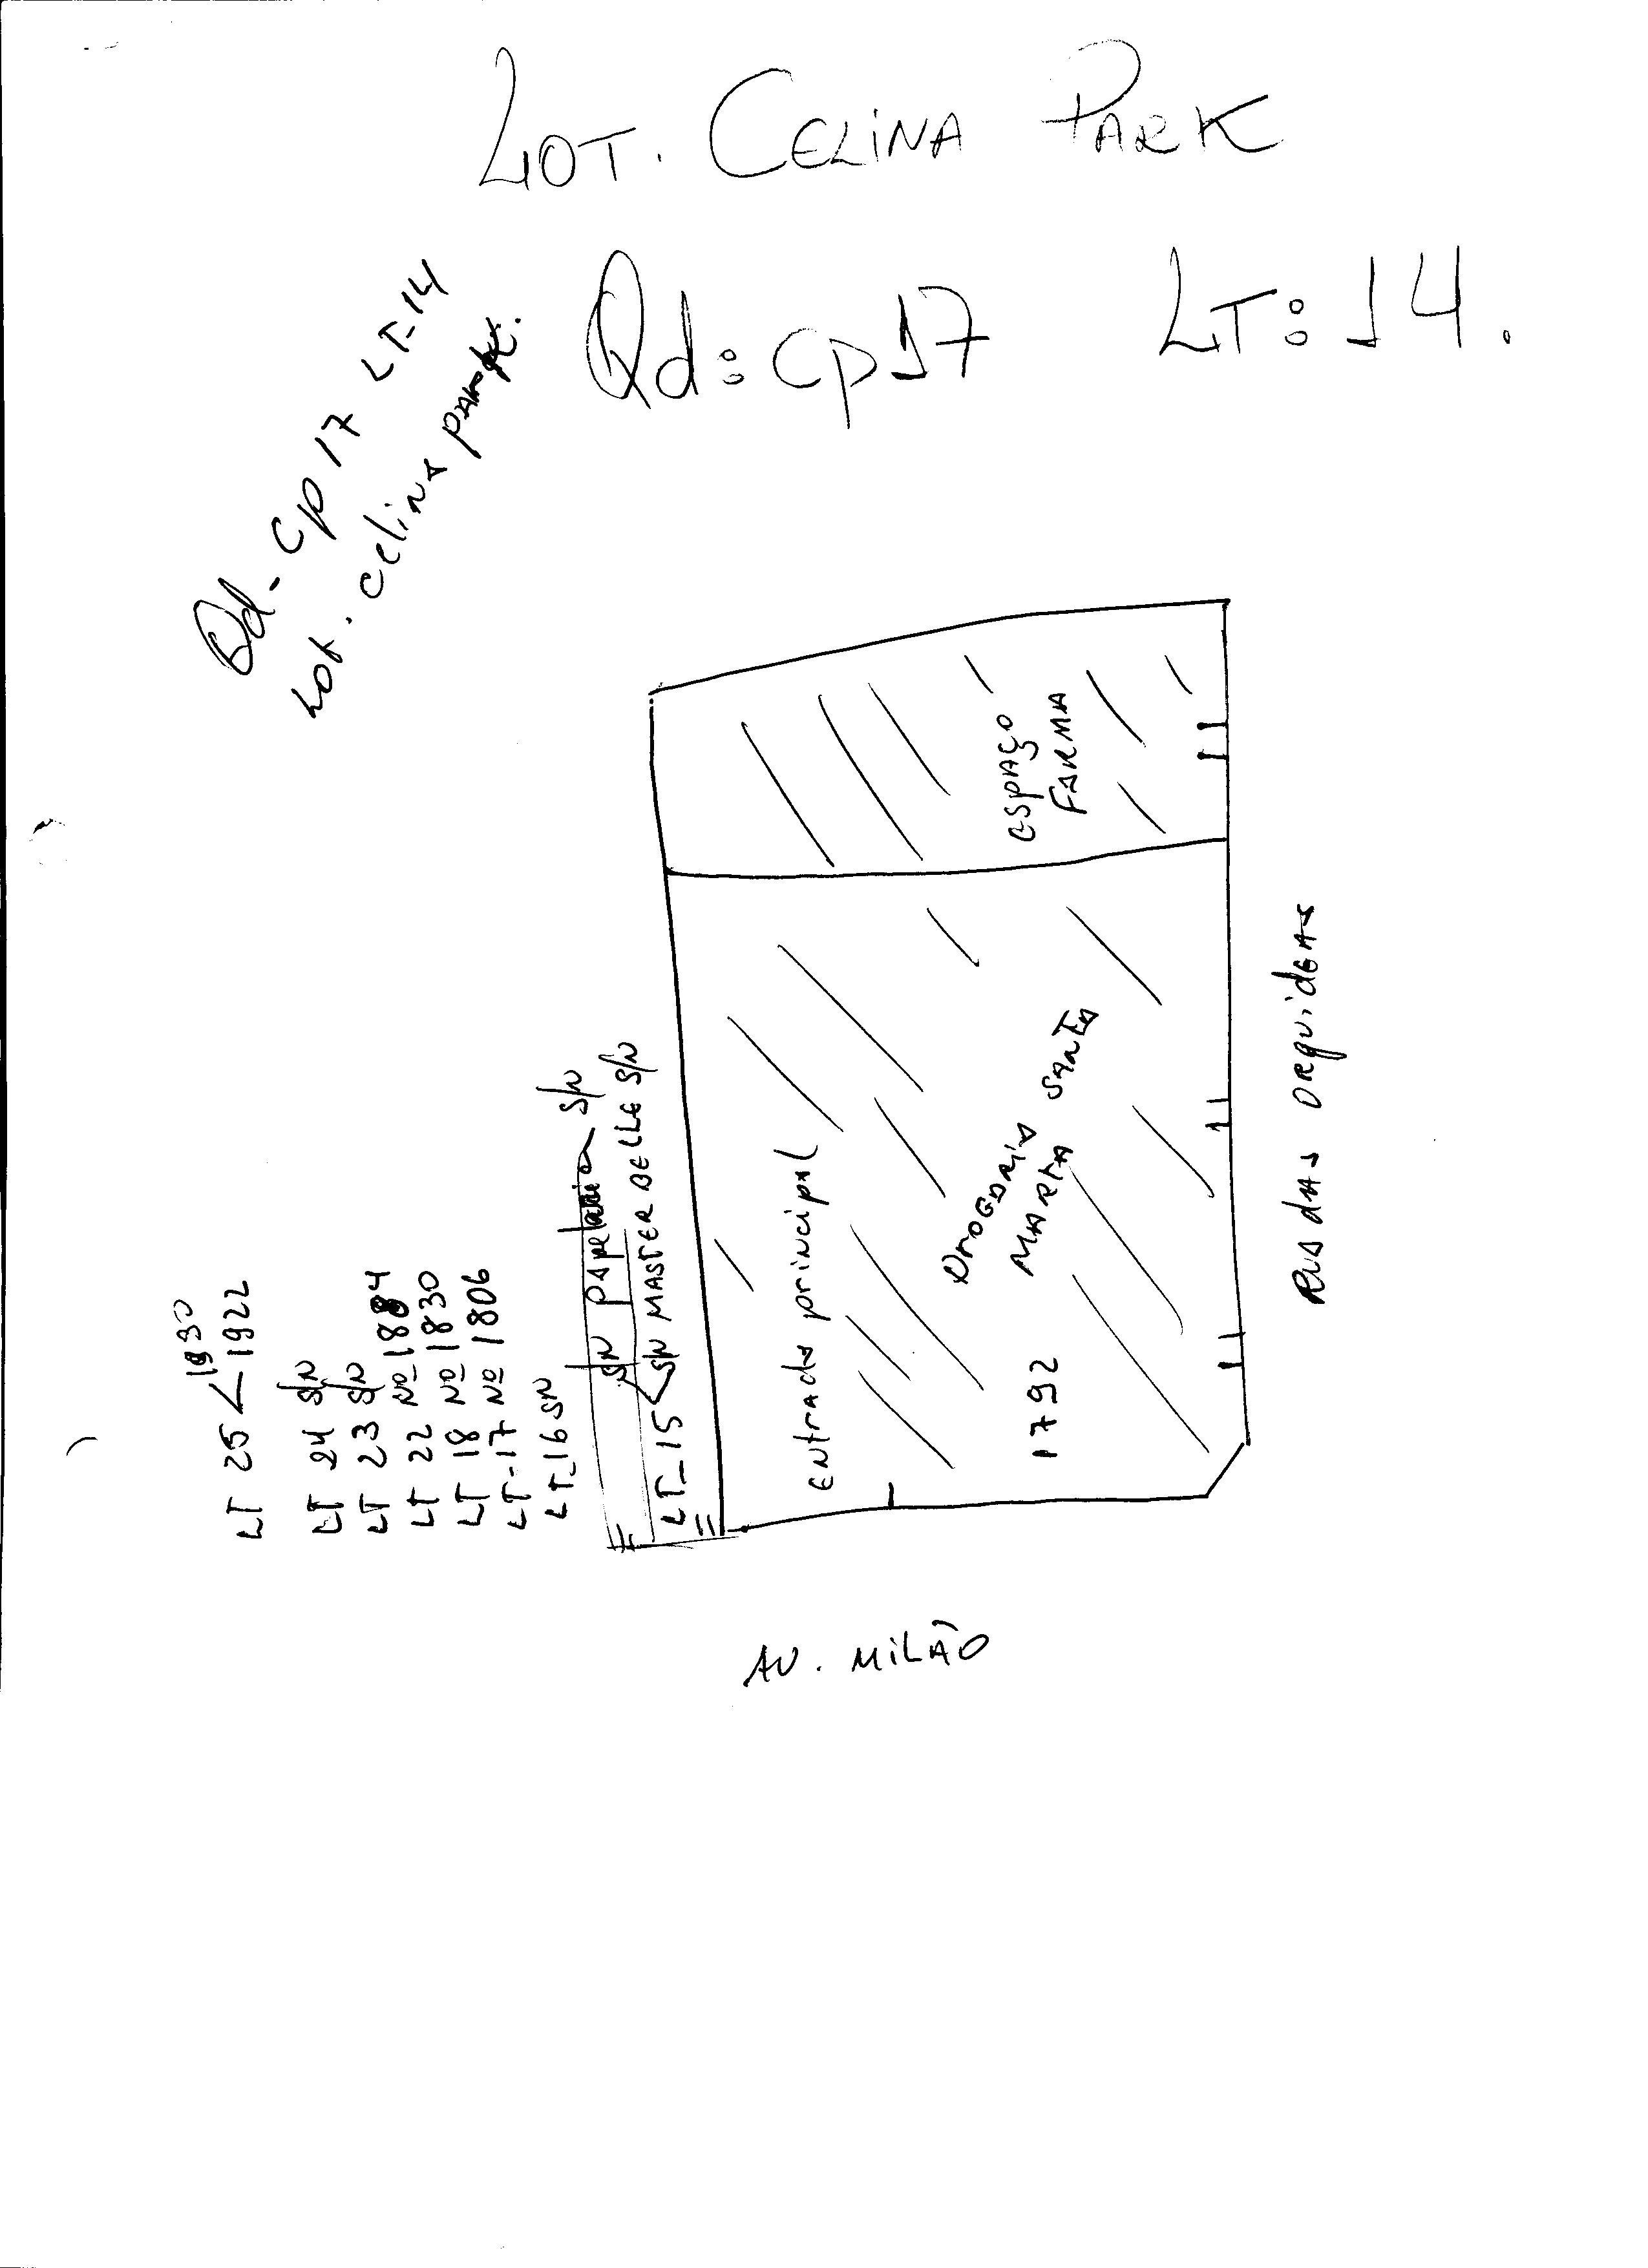 LOT. CELINA PARK
Qd: Cp17 LT: 14.
Qd- Cp 17 LT-14
Lot. celina park.
ESPAÇO
FARMA
Rua das orquideas
DrogAria SAnTA
MARIA
entrada principal
1792
LT 25 < 1930
1922
LT 24 S/N
LT 23 S/N
LT 22 Nº 1884
LT 18 Nº 1830
LT-17 Nº 1806
LT-16 SN
S/N papelaria S/N
LT-15 < S/N MASTER BELLE S/N
AV. MILÃO